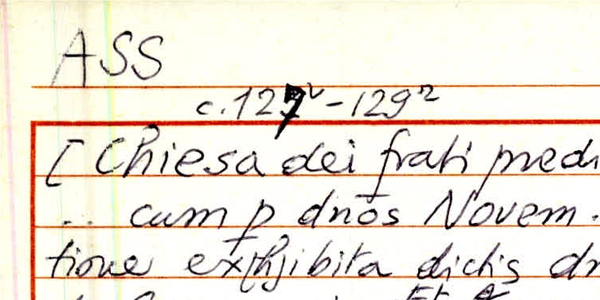 ASS
c. 127v - 129r
[Chiesa dei frati predi
.. cum p dnōs Novem.
tione ex[h]ibita dictis dn
Et